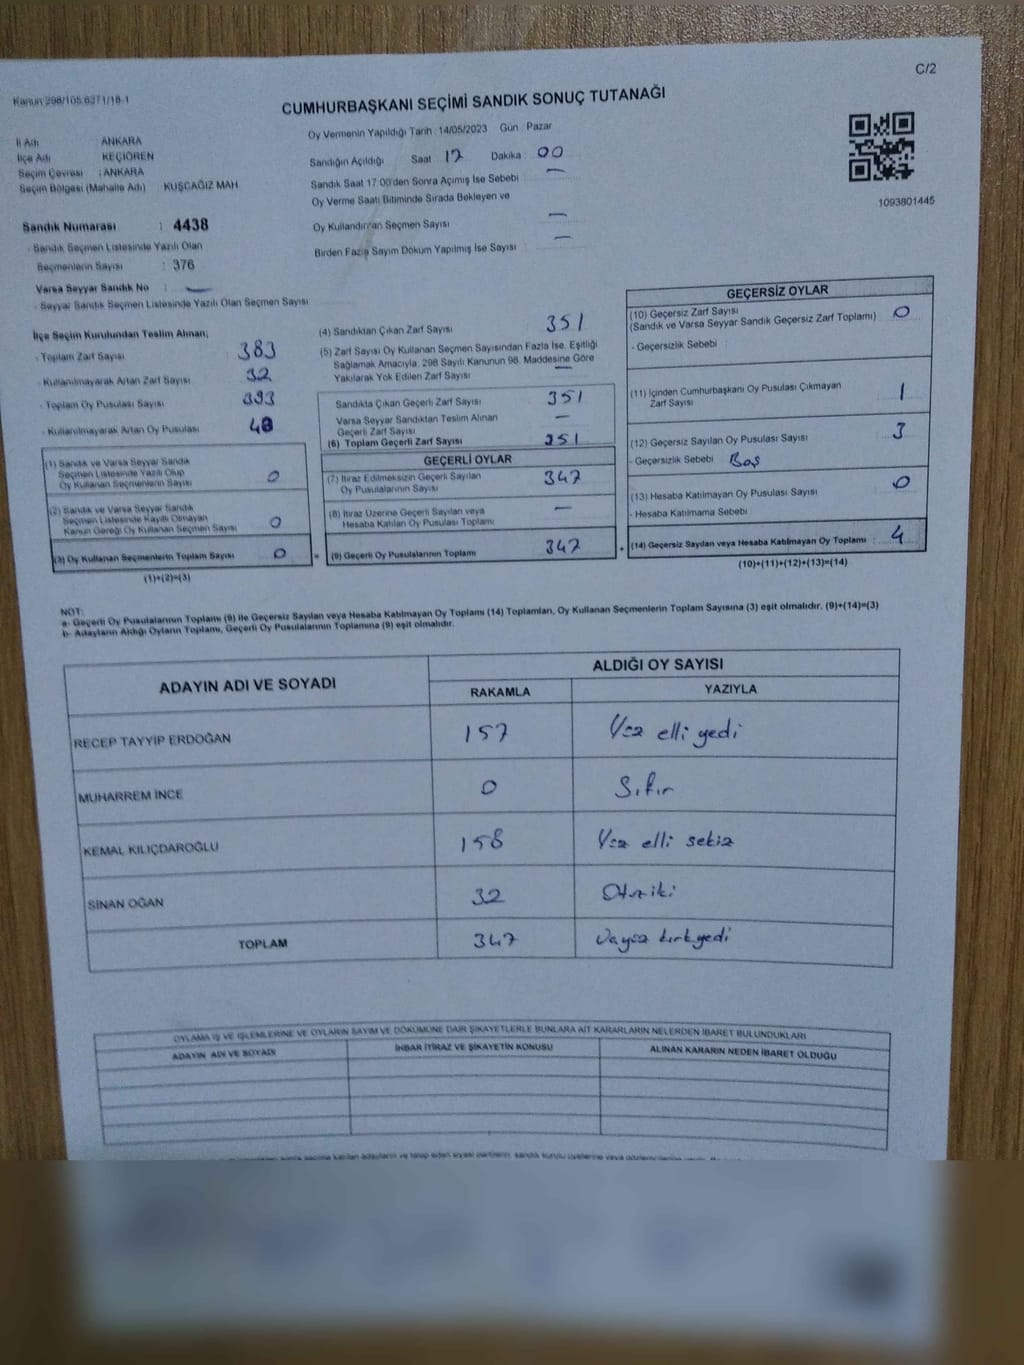 C/2
Kanun 298/105.6271/18-1
CUMHURBAŞKANI SEÇİMİ SANDIK SONUÇ TUTANAĞI
İl Adı : ANKARA
İlçe Adı : KEÇİÖREN
Seçim Çevresi : ANKARA
Seçim Bölgesi (Mahalle Adı) KUŞCAĞIZ MAH
Sandık Numarası : 4438
- Sandık Seçmen Listesinde Yazılı Olan
Seçmenlerin Sayısı : 376
Varsa Seyyar Sandık No : —
- Seyyar Sandık Seçmen Listesinde Yazılı Olan Seçmen Sayısı
Oy Vermenin Yapıldığı Tarih : 14/05/2023 Gün : Pazar
Sandığın Açıldığı Saat 17 Dakika 00
Sandık Saat 17:00'den Sonra Açılmış İse Sebebi —
Oy Verme Saati Bitiminde Sırada Bekleyen ve
Oy Kullandırılan Seçmen Sayısı —
Birden Fazla Sayım Döküm Yapılmış İse Sayısı —
1093801445
İlçe Seçim Kurulundan Teslim Alınan;
- Toplam Zarf Sayısı 383
- Kullanılmayarak Artan Zarf Sayısı 32
- Toplam Oy Pusulası Sayısı 393
- Kullanılmayarak Artan Oy Pusulası
(1) Sandık ve Varsa Seyyar Sandık
Seçmen Listesinde Yazılı Olup
Oy Kullanan Seçmenlerin Sayısı 0
(2) Sandık ve Varsa Seyyar Sandık
Seçmen Listesinde Kayıtlı Olmayan
Kanun Gereği Oy Kullanan Seçmen Sayısı 0
(3) Oy Kullanan Seçmenlerin Toplam Sayısı 0 =
(1)+(2)=(3)
(4) Sandıktan Çıkan Zarf Sayısı 351
(5) Zarf Sayısı Oy Kullanan Seçmen Sayısından Fazla İse, Eşitliği
Sağlamak Amacıyla, 298 Sayılı Kanunun 98. Maddesine Göre
Yakılarak Yok Edilen Zarf Sayısı —
Sandıkta Çıkan Geçerli Zarf Sayısı 351
Varsa Seyyar Sandıktan Teslim Alınan
Geçerli Zarf Sayısı —
(6) Toplam Geçerli Zarf Sayısı 351
GEÇERLİ OYLAR
(7) İtiraz Edilmeksizin Geçerli Sayılan
Oy Pusulalarının Sayısı 347
(8) İtiraz Üzerine Geçerli Sayılan veya
Hesaba Katılan Oy Pusulası Toplamı —
(9) Geçerli Oy Pusulalarının Toplamı 347 +
GEÇERSİZ OYLAR
(10) Geçersiz Zarf Sayısı
(Sandık ve Varsa Seyyar Sandık Geçersiz Zarf Toplamı) 0
- Geçersizlik Sebebi :
(11) İçinden Cumhurbaşkanı Oy Pusulası Çıkmayan
Zarf Sayısı 1
(12) Geçersiz Sayılan Oy Pusulası Sayısı 3
- Geçersizlik Sebebi Boş
(13) Hesaba Katılmayan Oy Pusulası Sayısı 0
- Hesaba Katılmama Sebebi
(14) Geçersiz Sayılan veya Hesaba Katılmayan Oy Toplamı : 4
(10)+(11)+(12)+(13)=(14)
NOT:
a- Geçerli Oy Pusulalarının Toplamı (9) ile Geçersiz Sayılan veya Hesaba Katılmayan Oy Toplamı (14) Toplamları, Oy Kullanan Seçmenlerin Toplam Sayısına (3) eşit olmalıdır. (9)+(14)=(3)
b- Adayların Aldığı Oyların Toplamı, Geçerli Oy Pusulalarının Toplamına (9) eşit olmalıdır.
ADAYIN ADI VE SOYADI ALDIĞI OY SAYISI
RAKAMLA YAZIYLA
RECEP TAYYİP ERDOĞAN 157 Yüz elli yedi
MUHARREM İNCE 0 Sıfır
KEMAL KILIÇDAROĞLU 158 Yüz elli sekiz
SİNAN OĞAN 32 Otuziki
TOPLAM 347 Üçyüz kırkyedi
OYLAMA İŞ VE İŞLEMLERİNE VE OYLARIN SAYIM VE DÖKÜMÜNE DAİR ŞİKAYETLERLE BUNLARA AİT KARARLARIN NELERDEN İBARET BULUNDUKLARI
ADAYIN ADI VE SOYADI İHBAR İTİRAZ VE ŞİKAYETİN KONUSU ALINAN KARARIN NEDEN İBARET OLDUĞU